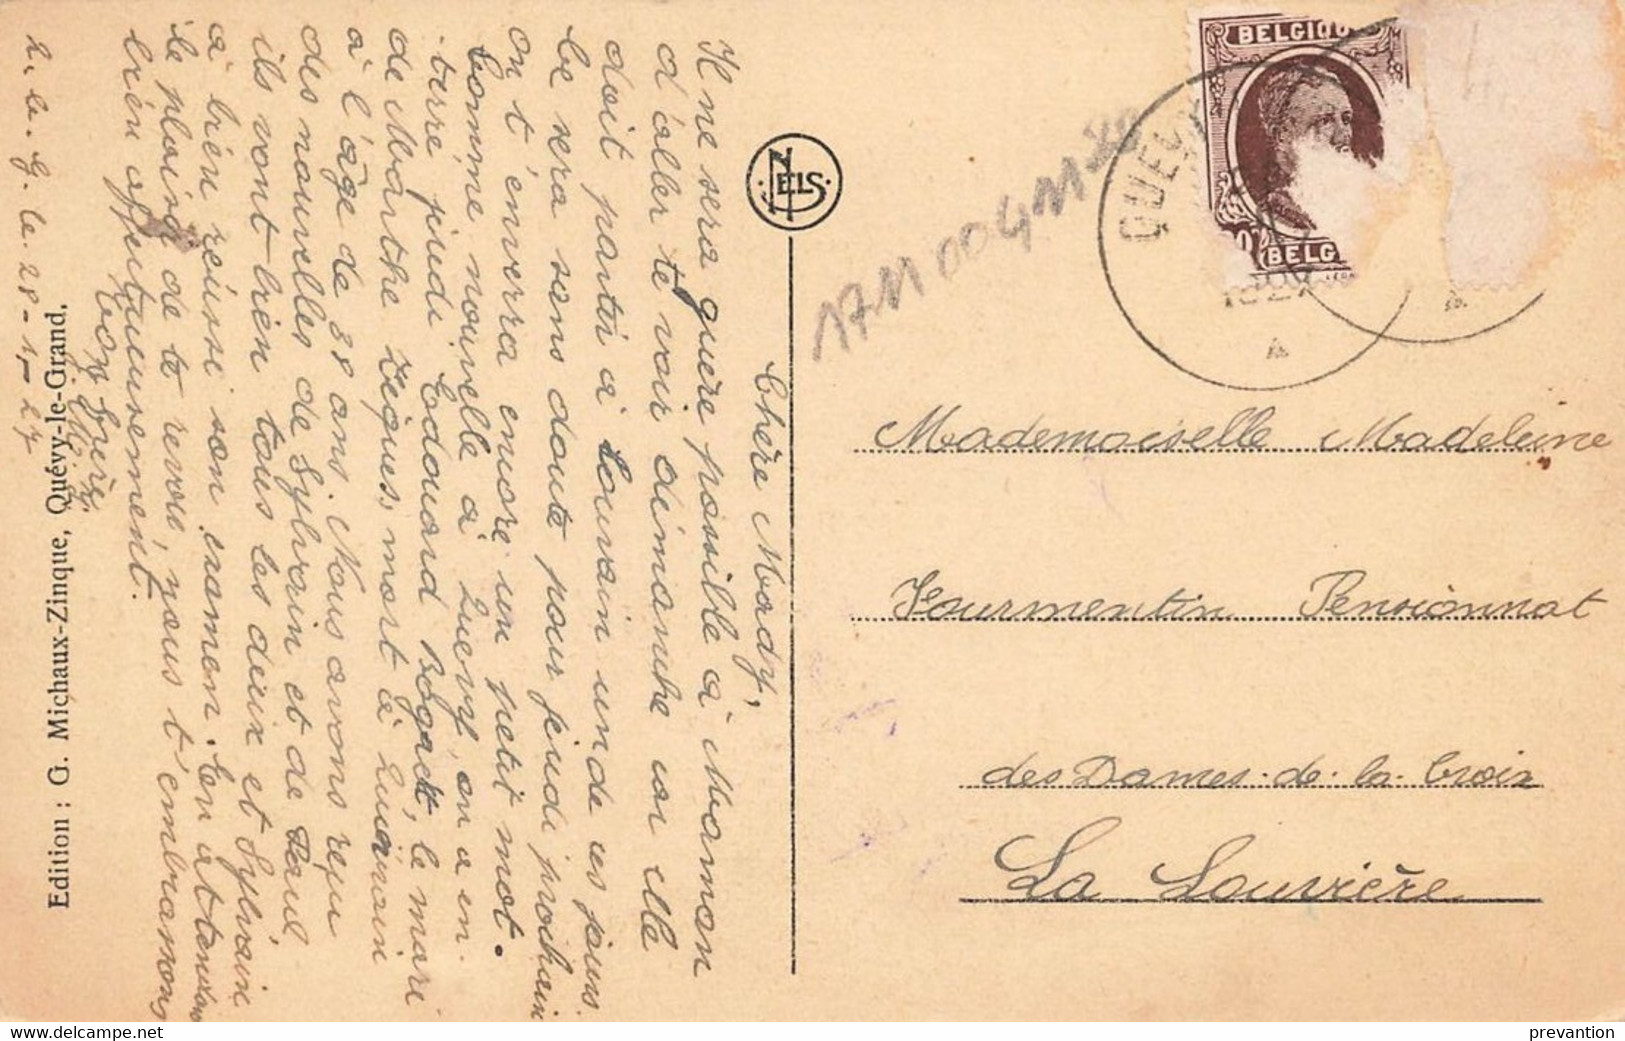 Chère Mady,
Il ne sera guère possible à Maman
d'aller te voir dimanche car elle
doit partir à Louvain un de ces jours.
Ce sera sans doute pour jeudi prochain
on t'enverra encore un petit mot.
Comme nouvelle à Quévy, on a en-
terré jeudi Edouard Bogaert, le mari
de Marthe Lègues, mort à
à l'âge de 38 ans. Nous avons reçu
des nouvelles de Sylvain et de Paul
ils vont bien tous les deux et Sylvain
a bien réussi son examen. En attendant
le plaisir de te revoir, nous t'embrassons
bien affectueusement.
Ton frère
Q. le. G. le. 28-1-27
Edition : G. Michaux-Zinque, Quévy-le-Grand.
NELS
17M004M80
BELGIQUE
BELG
QUEVY
1927
A
Mademoiselle Madeleine
Fourmentin Pensionnat
des Dames de la Croix
La Louvière
delcampe.net
prevantion